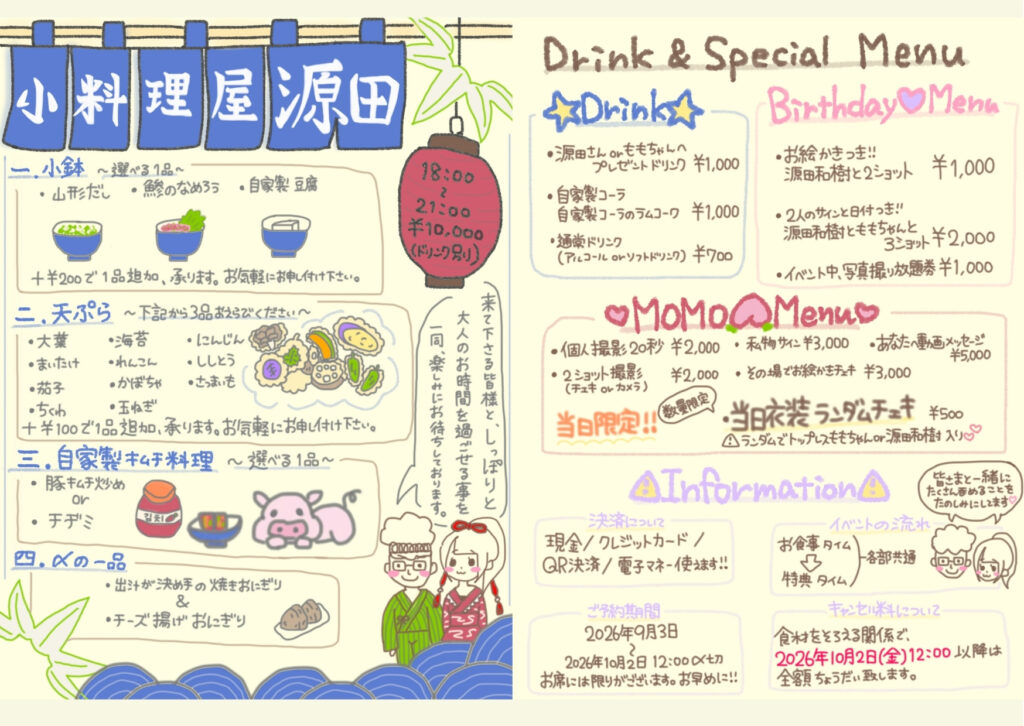 小料理屋 源田
18:00
～
21:00
¥10,000
(ドリンク別り)
一.小鉢 ～選べる1品～
・山形だし ・鯵のなめろう ・自家製豆腐
＋¥200で1品追加、承ります。お気軽にお申し付け下さい。
二.天ぷら ～下記から3品おえらびください～
・大葉 ・海苔 ・にんじん
・まいたけ ・れんこん ・ししとう
・茄子 ・かぼちゃ ・さつまいも
・ちくわ ・玉ねぎ
＋¥100で1品追加、承ります。お気軽にお申し付け下さい。
三.自家製キムチ料理 ～選べる1品～
・豚キムチ炒め
or
・チヂミ
김치
四.〆の一品
・出汁が決め手の焼きおにぎり
&
・チーズ揚げおにぎり
来て下さる皆様と、しっぽりと
大人のお時間を過ごせる事を
一同、楽しみにお待ちしております。
Drink & Special Menu
Drink
・源田さんorももちゃんへ
プレゼントドリンク ¥1,000
・自家製コーラ
自家製コーラのラムコーク ¥1,000
・通常ドリンク
(アルコールorソフトドリンク) ¥700
Birthday Menu
・お絵かきつき!!
源田和樹と2ショット ¥1,000
・2人のサインと日付つき!!
源田和樹とももちゃんと
3ショット ¥2,000
・イベント中、写真撮り放題券 ¥1,000
MOMO Menu
・個人撮影20秒 ¥2,000 ・私物サイン ¥3,000 ・あなたへ動画メッセージ
¥5,000
・2ショット撮影 ¥2,000 ・その場でお絵かきチェキ ¥3,000
(チェキorカメラ)
当日限定!!
数量限定
・当日衣装ランダムチェキ ¥500
⚠ランダムでトップレスももちゃんor源田和樹入り♡
⚠Information⚠
決済について
現金/クレジットカード/
QR決済/電子マネー使えます!!
イベントの流れ
お食事タイム
⇩
特典タイム
各部共通
皆さまと一緒に
たくさん呑めることを
たのしみにしてます♡
ご予約期間
2026年9月3日
～
2026年10月2日 12:00〆切
お席には限りがございます。お早めに!!
キャンセル料について
食材をそろえる関係で、
2026年10月2日(金)12:00以降は
全額ちょうだい致します。